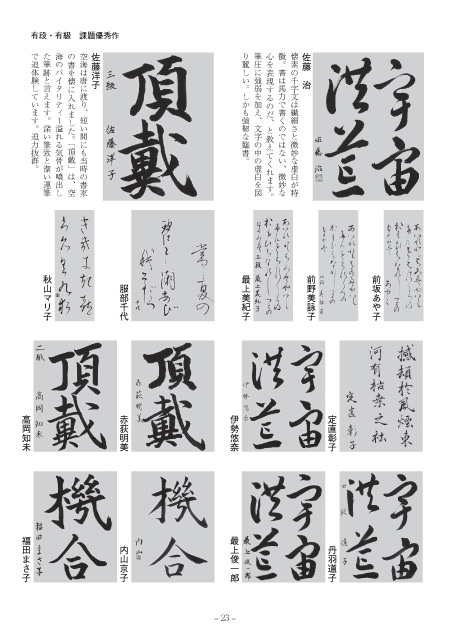 有段・有級　課題優秀作
宇宙
洪荒
佐藤 治
佐藤　治
懐素の千字文は繊細さと微妙な虚白が特
徴。書は馬力で書くのではない、微妙な
心を表現するのだ、と教えてくれます。
筆圧に強弱を加え、文字の中の虚白を図
り麗しい。しかも強靭な臨書。
頂戴
三級　佐藤洋子
佐藤洋子
空海は唐に渡り、短い間にも当時の書家
の書を懐に入れました。「頂戴」は、空
海のバイタリティー溢れる気骨が噴出し
た筆跡と言えます。深い筆致と潔い運筆
で追体験しています。迫力抜群。
前坂あや子
前野美詠子
最上美紀子
服部千代
秋山マリ子
撼頽於風煙東
河有枯桑之社
定直彰子
定直彰子
宇宙
洪荒
伊勢悠奈
頂戴
赤荻明美
赤荻明美
頂戴
二級　高岡知未
高岡知未
宇宙
洪荒
丹羽道子
宇宙
洪荒
最上俊一郎
最上俊一郎
機合
内山
内山京子
機合
福田まさ子
福田まさ子
– 23 –